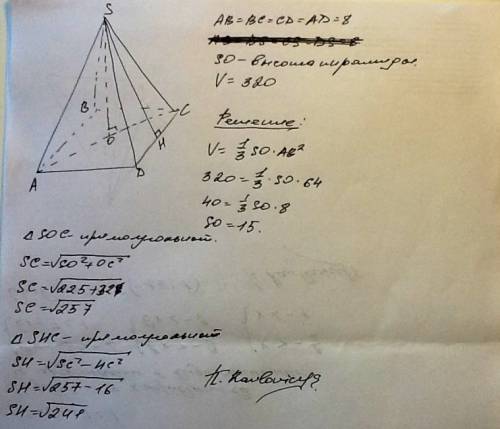 S
B
C
O
H
A
D
AB=BC=CD=AD=8
SO - высота пирамиды.
V=320
Решение:
V=1/3 SO·AB²
320=1/3·SO·64
40=1/3 SO·8
SO=15.
△SOC - прямоугольный.
SC=√SO²+OC²
SC=√225+32
SC=√257
△SHC - прямоугольный
SH=√SC²-HC²
SH=√257-16
SH=√241